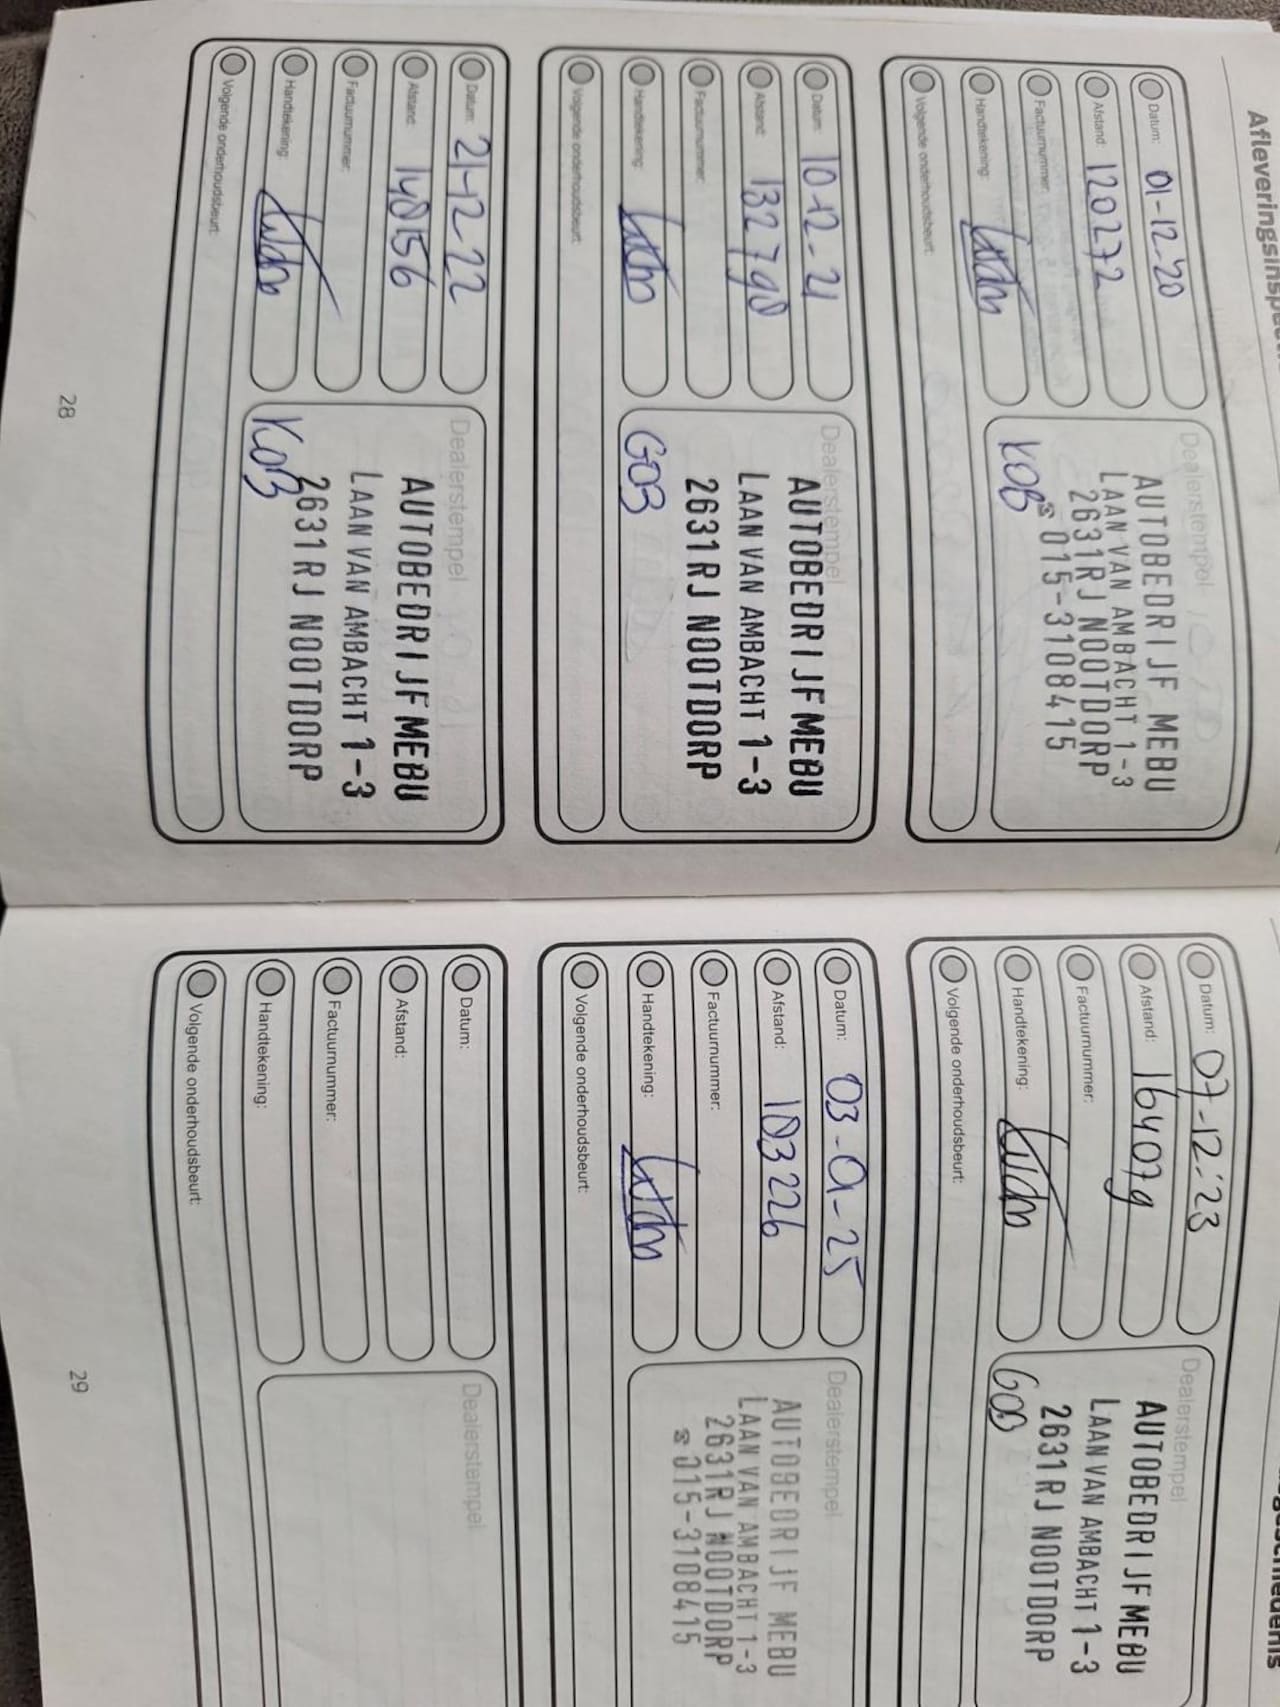 Afleveringsinspe
Datum: 01-12-20
Afstand: 120272
Factuurnummer:
Handtekening:
Volgende onderhoudsbeurt:
Dealerstempel
AUTOBEDRIJF MEBU
LAAN VAN AMBACHT 1-3
2631RJ NOOTDORP
☎ 015-3108415
KOB
Datum: 10-12-21
Afstand: 132790
Factuurnummer:
Handtekening:
Volgende onderhoudsbeurt:
Dealerstempel
AUTOBEDRIJF MEBU
LAAN VAN AMBACHT 1-3
2631RJ NOOTDORP
GOB
Datum: 21-12-22
Afstand: 148156
Factuurnummer:
Handtekening:
Volgende onderhoudsbeurt:
Dealerstempel
AUTOBEDRIJF MEBU
LAAN VAN AMBACHT 1-3
2631RJ NOOTDORP
KOB
28
Datum: 07-12-'23
Afstand: 164079
Factuurnummer:
Handtekening:
Volgende onderhoudsbeurt:
Dealerstempel
AUTOBEDRIJF MEBU
LAAN VAN AMBACHT 1-3
2631RJ NOOTDORP
GOB
Datum: 03-01-25
Afstand: 183226
Factuurnummer:
Handtekening:
Volgende onderhoudsbeurt:
Dealerstempel
AUTOBEDRIJF MEBU
LAAN VAN AMBACHT 1-3
2631RJ NOOTDORP
☎ 015-3108415
Datum:
Afstand:
Factuurnummer:
Handtekening:
Volgende onderhoudsbeurt:
Dealerstempel
29